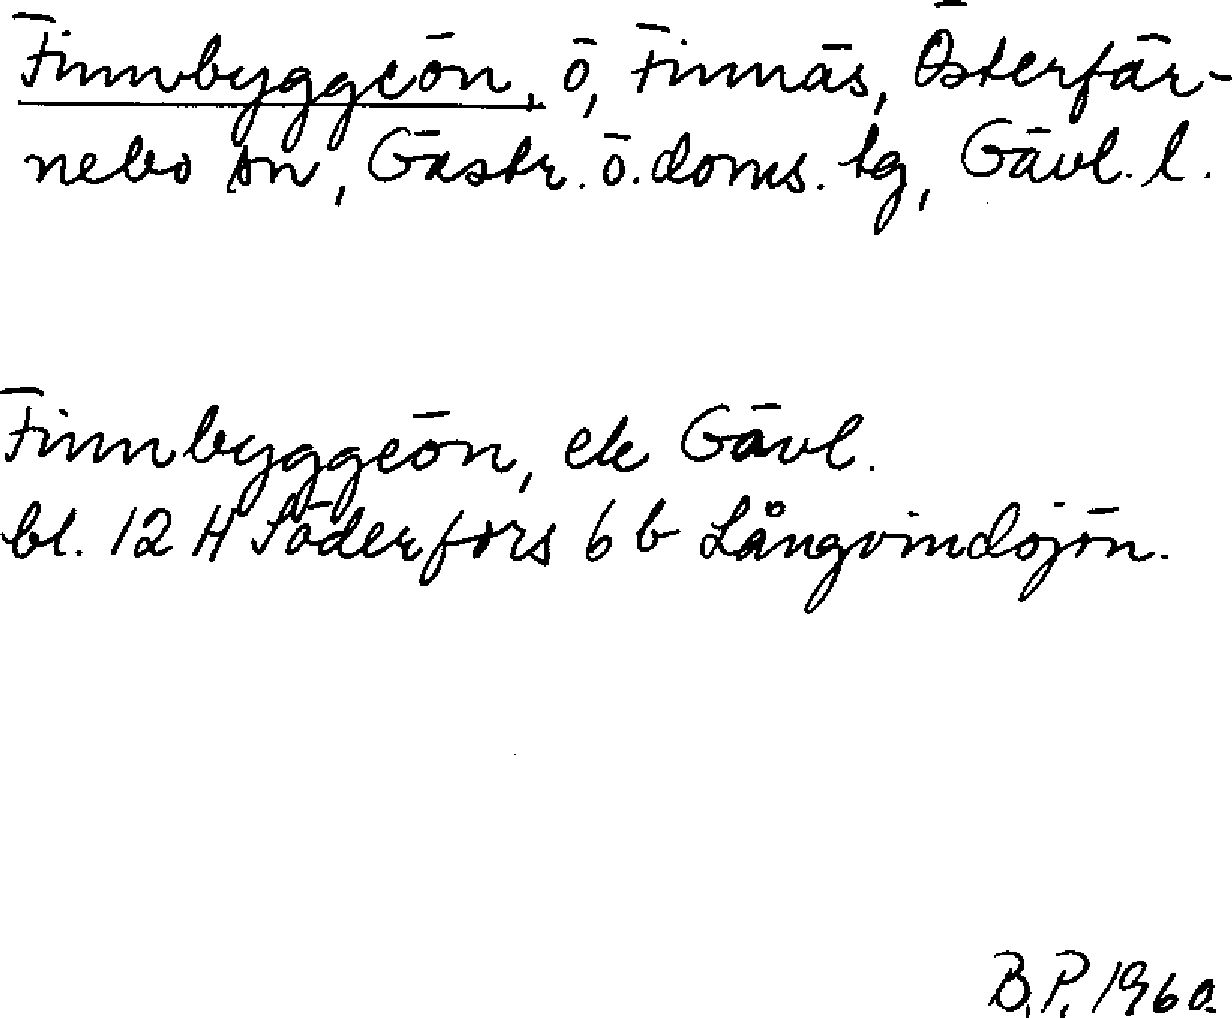 Finnbyggeön, ö, Finnäs, Österfär-
nebo sn, Gästr. ö. doms. tg, Gävl. l.
Finnbyggeön, ek Gävl.
bl. 12 H Söderfors 6 b Långvindsjön.
B.P. 1960